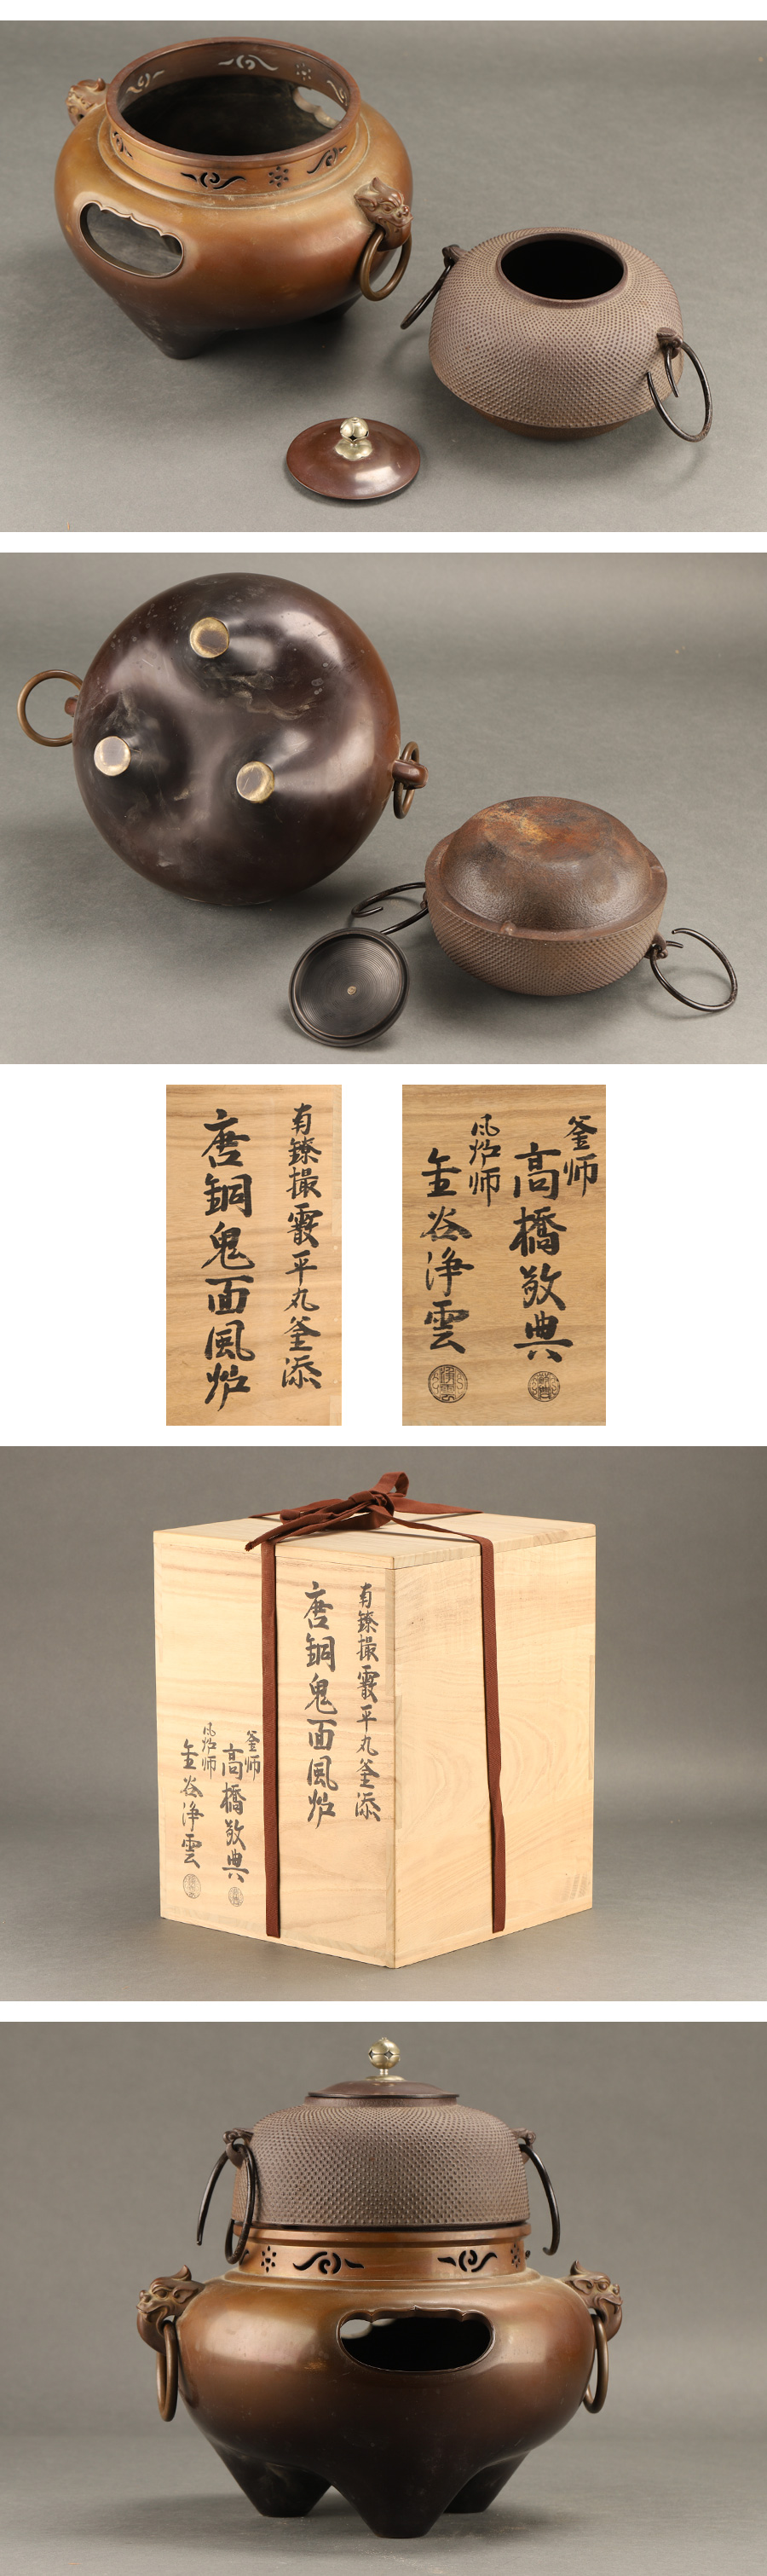 南鐐撮霰平丸釜添
唐銅鬼面風炉
釜师
高橋敬典
风炉师
金谷浄雲
南鐐撮霰平丸釜添
唐銅鬼面風炉
釜师
高橋敬典
风炉师
金谷浄雲